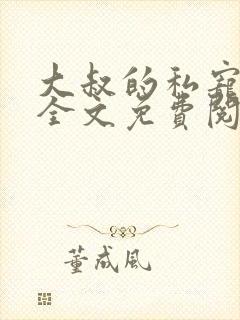 大叔的私宠
全文免費阅
董成风